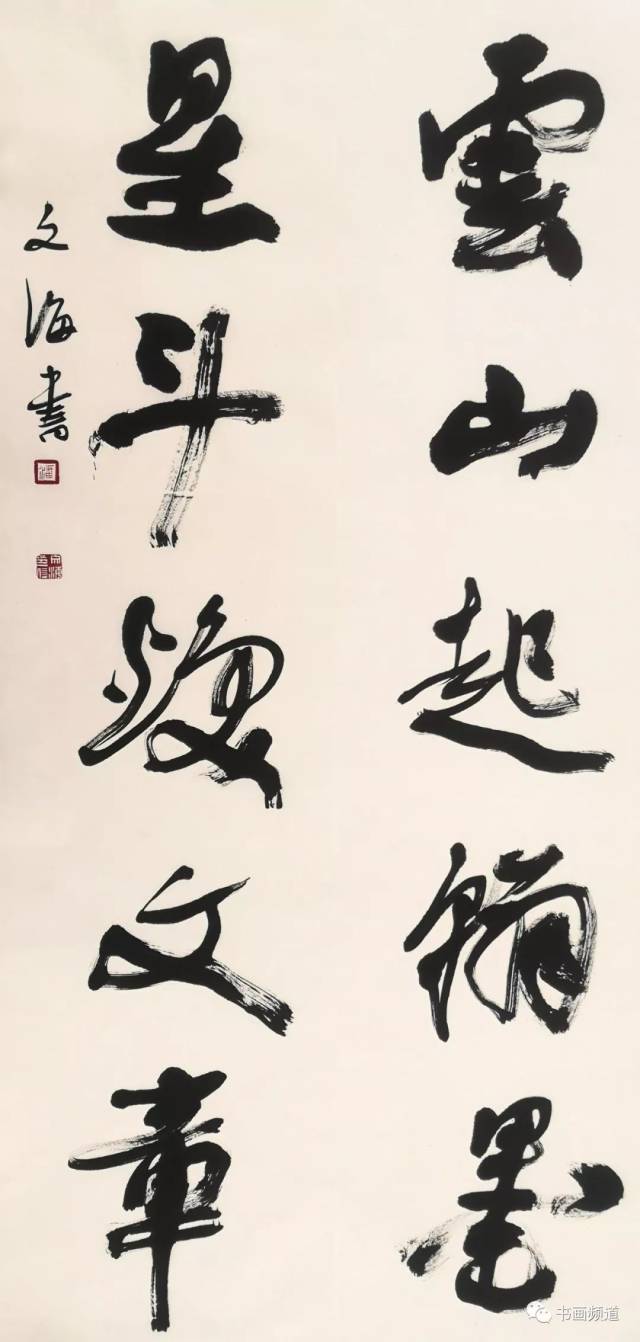 雲山起翰墨
星斗焕文章
文海書
书画频道